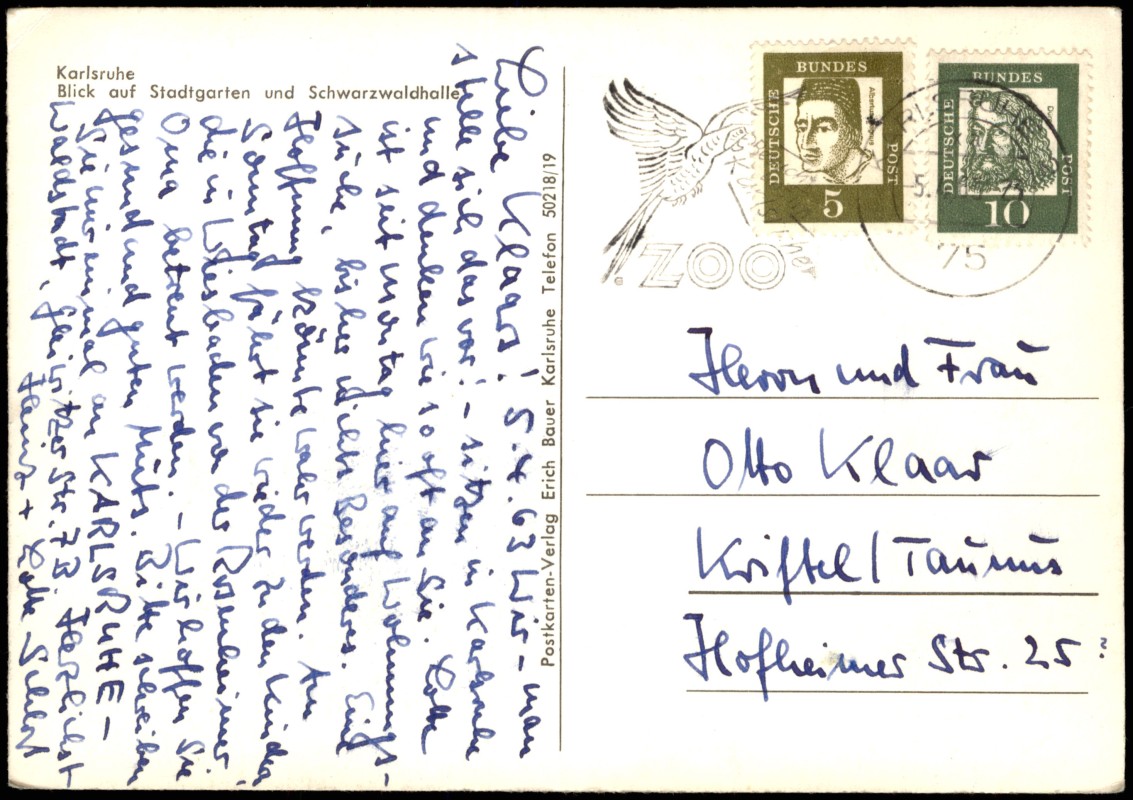 Karlsruhe
Blick auf Stadtgarten und Schwarzwaldhalle
Liebe Klaars! 5.4.63 Wir - man
stelle sich das vor! - sitzen in Karlsruhe
und denken wie so oft an Sie. Lotte
ist seit Montag hier auf Wohnungs-
suche, bisher nichts Besonderes. Eine
Hoffnung könnte wahr werden. Am
Sonntag fährt sie wieder zu den Kindern
die in Wiesbaden von der Rosenheimer
Oma betreut werden. - Wir hoffen Sie
gesund und guten Muts. Bitte schreiben
Sie mir einmal an KARLSRUHE -
Waldstadt, Str. 7B. Herzlichst
Heinz + Lotte
Postkarten-Verlag Erich Bauer Karlsruhe Telefon 50218/19
ZOO
DEUTSCHE
BUNDES
POST
5
DEUTSCHE
BUNDES
POST
10
75
Herrn und Frau
Otto Klaar
Kriftel / Taunus
Hofheimer Str. 25 ?